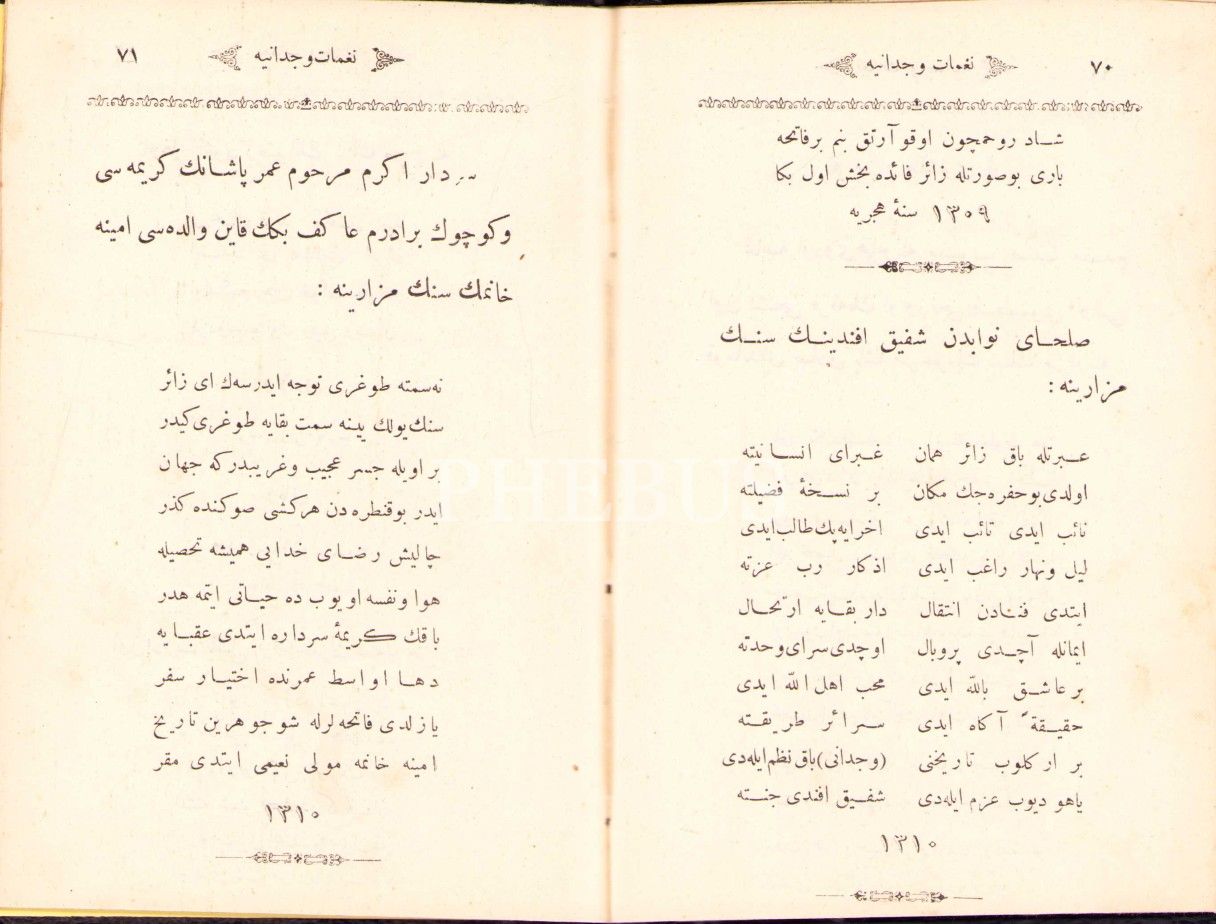 ٧٠ نغمات وجدانیه
شاد روحمچون اوقو آرتق بنم برفاتحه
باری بوصورتله زائر فائده بخش اول بكا
١٣٠٩ سنهٔ هجریه
صلحای نوابدن شفیق افندینك سنك
مزارینه :
عبرتله باق زائر همان غبرای انسانیته
اولدی بوحفره جك مكان بر نسخهٔ فضیلته
نائب ایدی تائب ایدی اخرایه پك طالب ایدی
لیل ونهار راغب ایدی اذكار رب عزته
ایتدی فنادن انتقال دار بقایه ارتحال
ایمانله آچدی پروبال اوچدی سرای وحدته
بر عاشق بالله ایدی محب اهل الله ایدی
حقیقةً آكاه ایدی سرائر طریقته
بر ار كلوب تاریخنی (وجدانی) باق نظم ایله دی
یاهو دیوب عزم ایله دی شفیق افندی جنته
١٣١٠
نغمات وجدانیه ٧١
سردار اكرم مرحوم عمر پاشانك كریمه سی
وكوچوك برادرم عاكف بكك قاین والده سی امینه
خانمك سنك مزارینه :
نه سمته طوغری توجه ایدرسه ك ای زائر
سنك یولك یینه سمت بقایه طوغری كیدر
بر اویله جسر عجیب وغریبدركه جهان
ایدر بوقنطره دن هركشی صوكنده كذر
چالیش رضای خدایی همیشه تحصیله
هوا ونفسه اویوب ده حیاتی ایتمه هدر
باقك كریمهٔ سرداره ایتدی عقبایه
دها اواسط عمرنده اختیار سفر
یازلدی فاتحه لرله شو جوهرین تاریخ
امینه خانمه مولی نعیمی ایتدی مقر
١٣١٠
PHEBUS